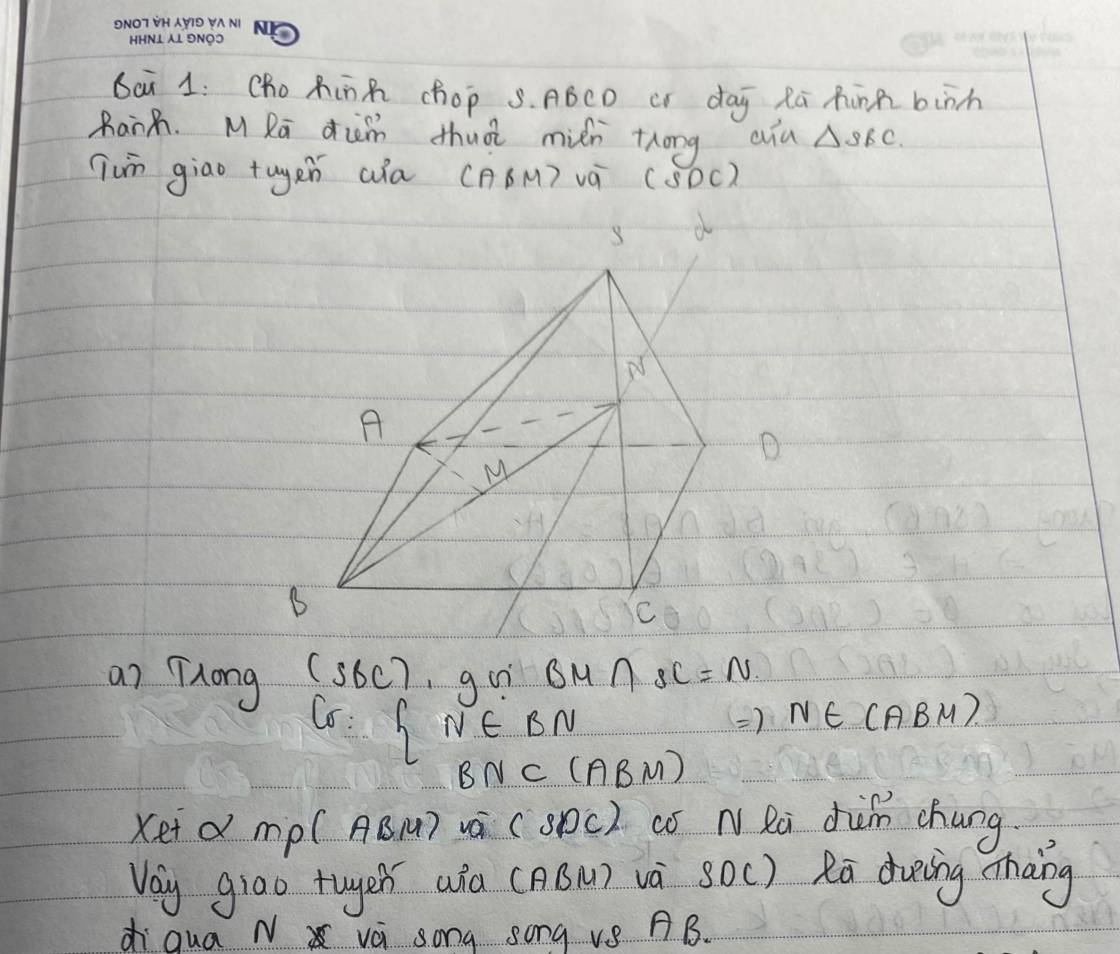 CÔNG TY TNHH
IN VÀ GIẤY HẠ LONG
Bài 1: Cho hình chóp S.ABCD có đáy là hình bình
hành. M là điểm thuộc miền trong của △SBC.
Tìm giao tuyến của (ABM) và (SDC)
S d
N
A
M
D
B
C
a) Trong (SBC), gọi BM ∩ SC = N.
Có: { N ∈ BN => N ∈ (ABM)
BN ⊂ (ABM)
Xét 2 mp( ABM) và (SDC) có N là điểm chung.
Vậy giao tuyến của (ABM) và SDC) là đường thẳng
đi qua N và song song vs AB.